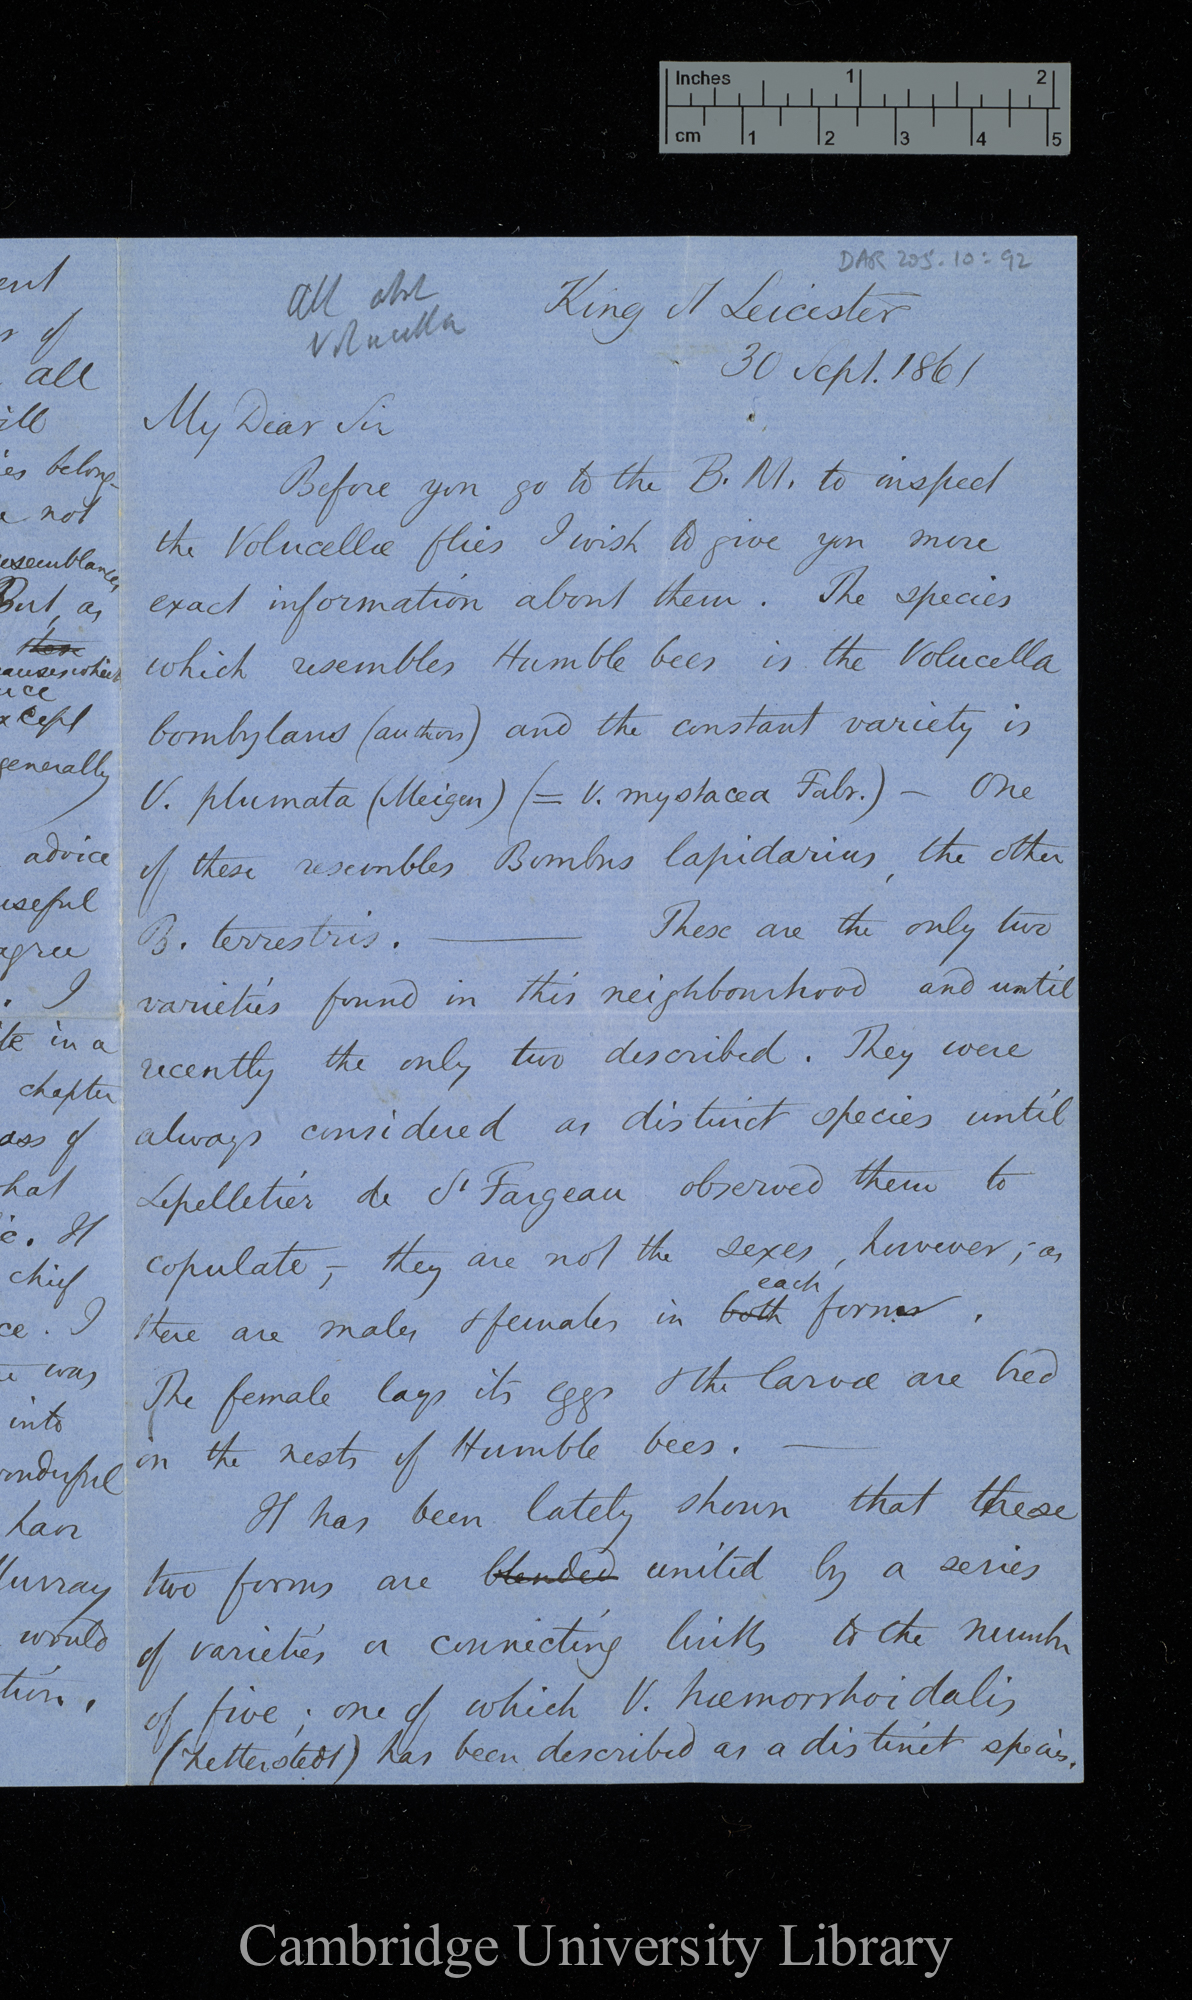 Inches 1 2
cm 1 2 3 4 5
DAR 205.10:92
All abt
Volucella
King St Leicester
30 Sept. 1861
My Dear Sir
Before you go to the B. M. to inspect
the Volucellæ flies I wish to give you more
exact information about them. The species
which resembles Humble bees is the Volucella
bombylans (authors) and the constant variety is
V. plumata (Meigen) (= V. mystacea Fabr.) — One
of these resembles Bombus lapidarius, the other
B. terrestris. — These are the only two
varieties found in this neighbourhood and until
recently the only two described. They were
always considered as distinct species until
Lepelletier de St Fargeau observed them to
copulate,— they are not the sexes, however,— as
each
there are males & females in both forms.
The female lays its eggs & the larvæ are bred
in the nests of Humble bees. —
It has been lately shown that these
two forms are blended united by a series
of varieties or connecting links to the number
of five; one of which V. hæmorrhoidalis
(Zetterstedt) has been described as a distinct species.
ent
of
all
ill
es belong-
not
resemblances
But, as
these
causes which
ce
except
generally
advice
useful
agree
. I
in a
chapter
ass of
hat
. It
chief
ce. I
was
into
wonderful
have
Murray
would
tion.
Cambridge University Library